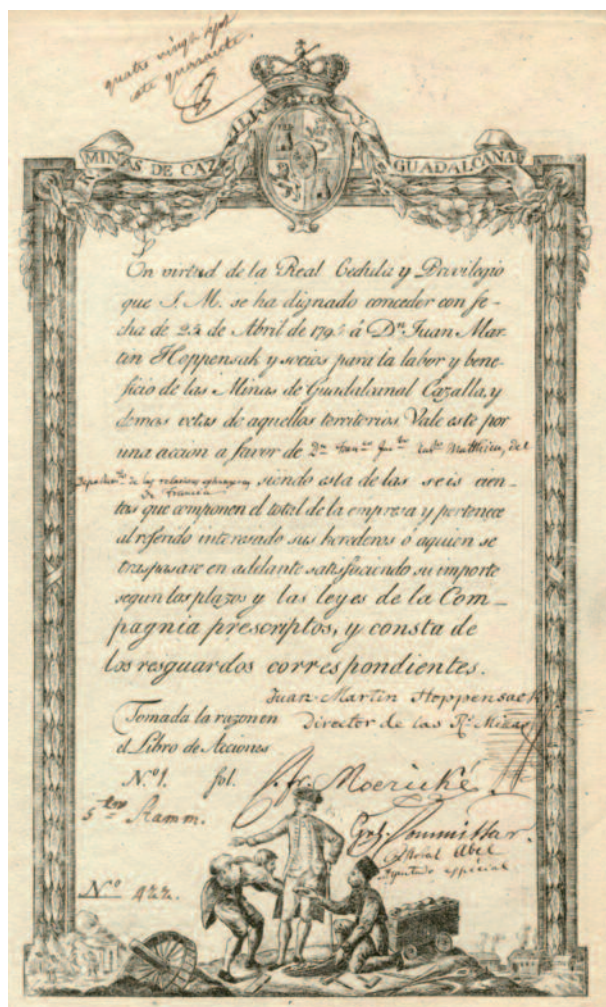 quatre vingt sept
cate quarante.
RS. MINAS DE CAZALLA Y GUADALCANAL
En virtud de la Real Cedula y Privilegio
que S. M. se ha dignado conceder con fe-
cha de 24 de Abril de 179 á Dn. Juan Mar-
tin Hoppensak y socios para la labor y bene-
ficio de las Minas de Guadalcanal Cazalla, y
demas vetas de aquellos territorios. Vale este por
una accion a favor de Dn. Matthieu, del
de las relaciones de Francia siendo esta de las seis cien-
tas que componen el total de la empresa y pertenece
al referido interesado sus herederos ó aquien se
traspasare en adelante satisfaciendo su importe
segun las plazos y las leyes de la Com-
pagnia prescriptos, y consta de
los resguardos correspondientes.
Juan Martin Hoppensack
Director de las Rs. Minas
Tomada la razon en
el Libro de Acciones
N.º 1. fol. Fr. Moerické.
Ramm.
Abel
Diputado
N.º 422.